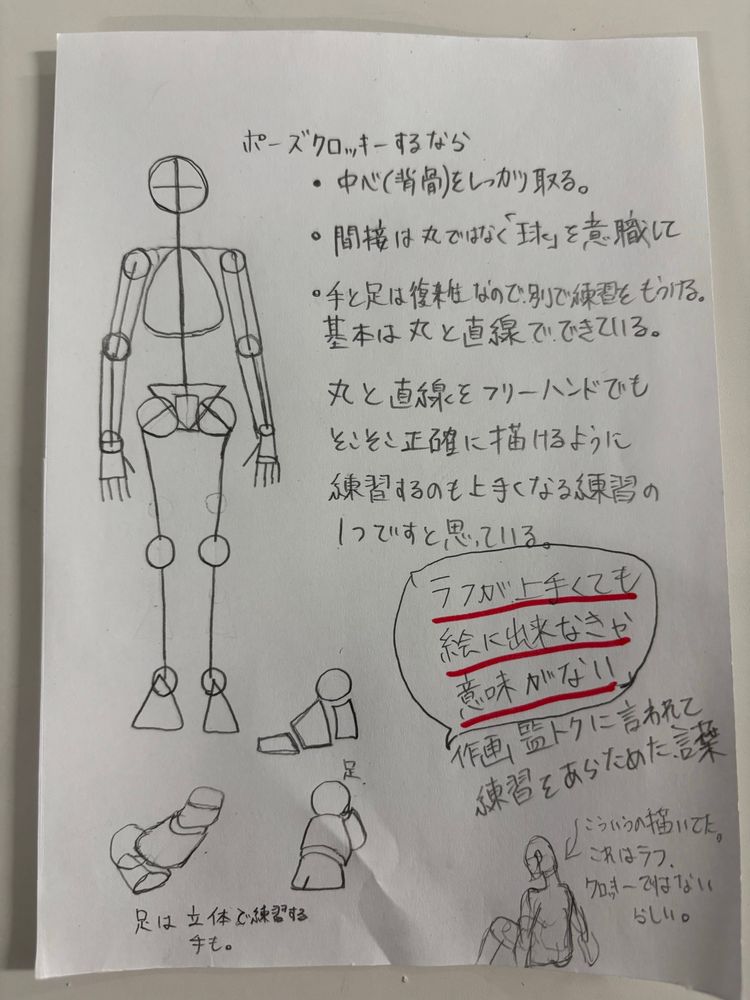 ポーズクロッキーするなら
・中心(背骨)をしっかり取る。
・間接は丸ではなく「球」を意職して
・手と足は復雑なので別で練習をもうける。
基本は丸と直線でできている。
丸と直線をフリーハンドでも
そこそこ正確に描けるように
練習するのも上手くなる練習の
1つですと思っている。
「ラフが上手くても
絵に出来なきゃ
意味がない」
作画監トクに言われて
練習をあらためた言葉
足
足は立体で練習する
手も。
こういうの描いてた。
これはラフ.
クロッキーではない
らしい。